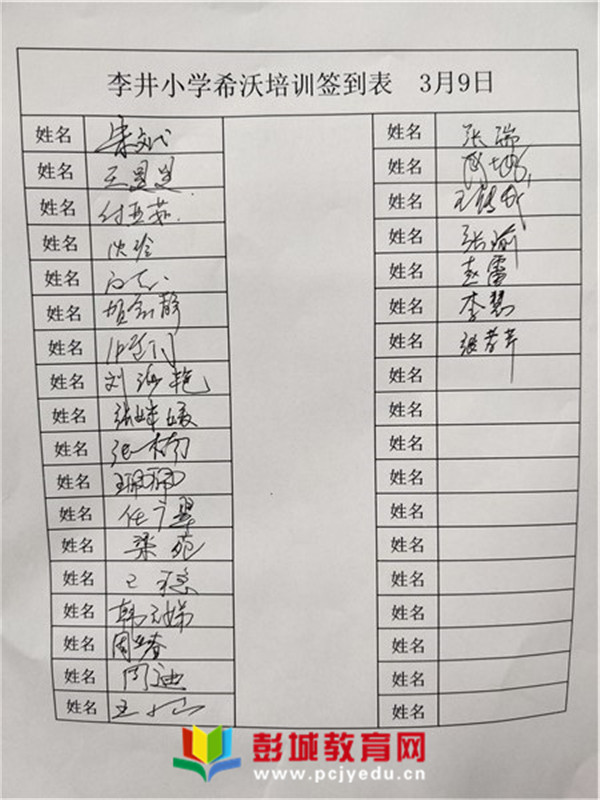 李井小学希沃培训签到表 3月9日
姓名 姓名 张瑞
姓名 姓名
姓名 付亚茹 姓名
姓名 沈玲 姓名 张瑜
姓名 姓名 赵雷
姓名 胡 静 姓名 李慧
姓名 姓名 张 芹
姓名 刘海艳 姓名
姓名 张 媛 姓名
姓名 张楠 姓名
姓名 王珮珮 姓名
姓名 任 翠 姓名
姓名 梁苑 姓名
姓名 王稳 姓名
姓名 韩 娣 姓名
姓名 周 春 姓名
姓名 周迪 姓名
姓名 王 姓名
彭城教育网
www.pcjyedu.cn